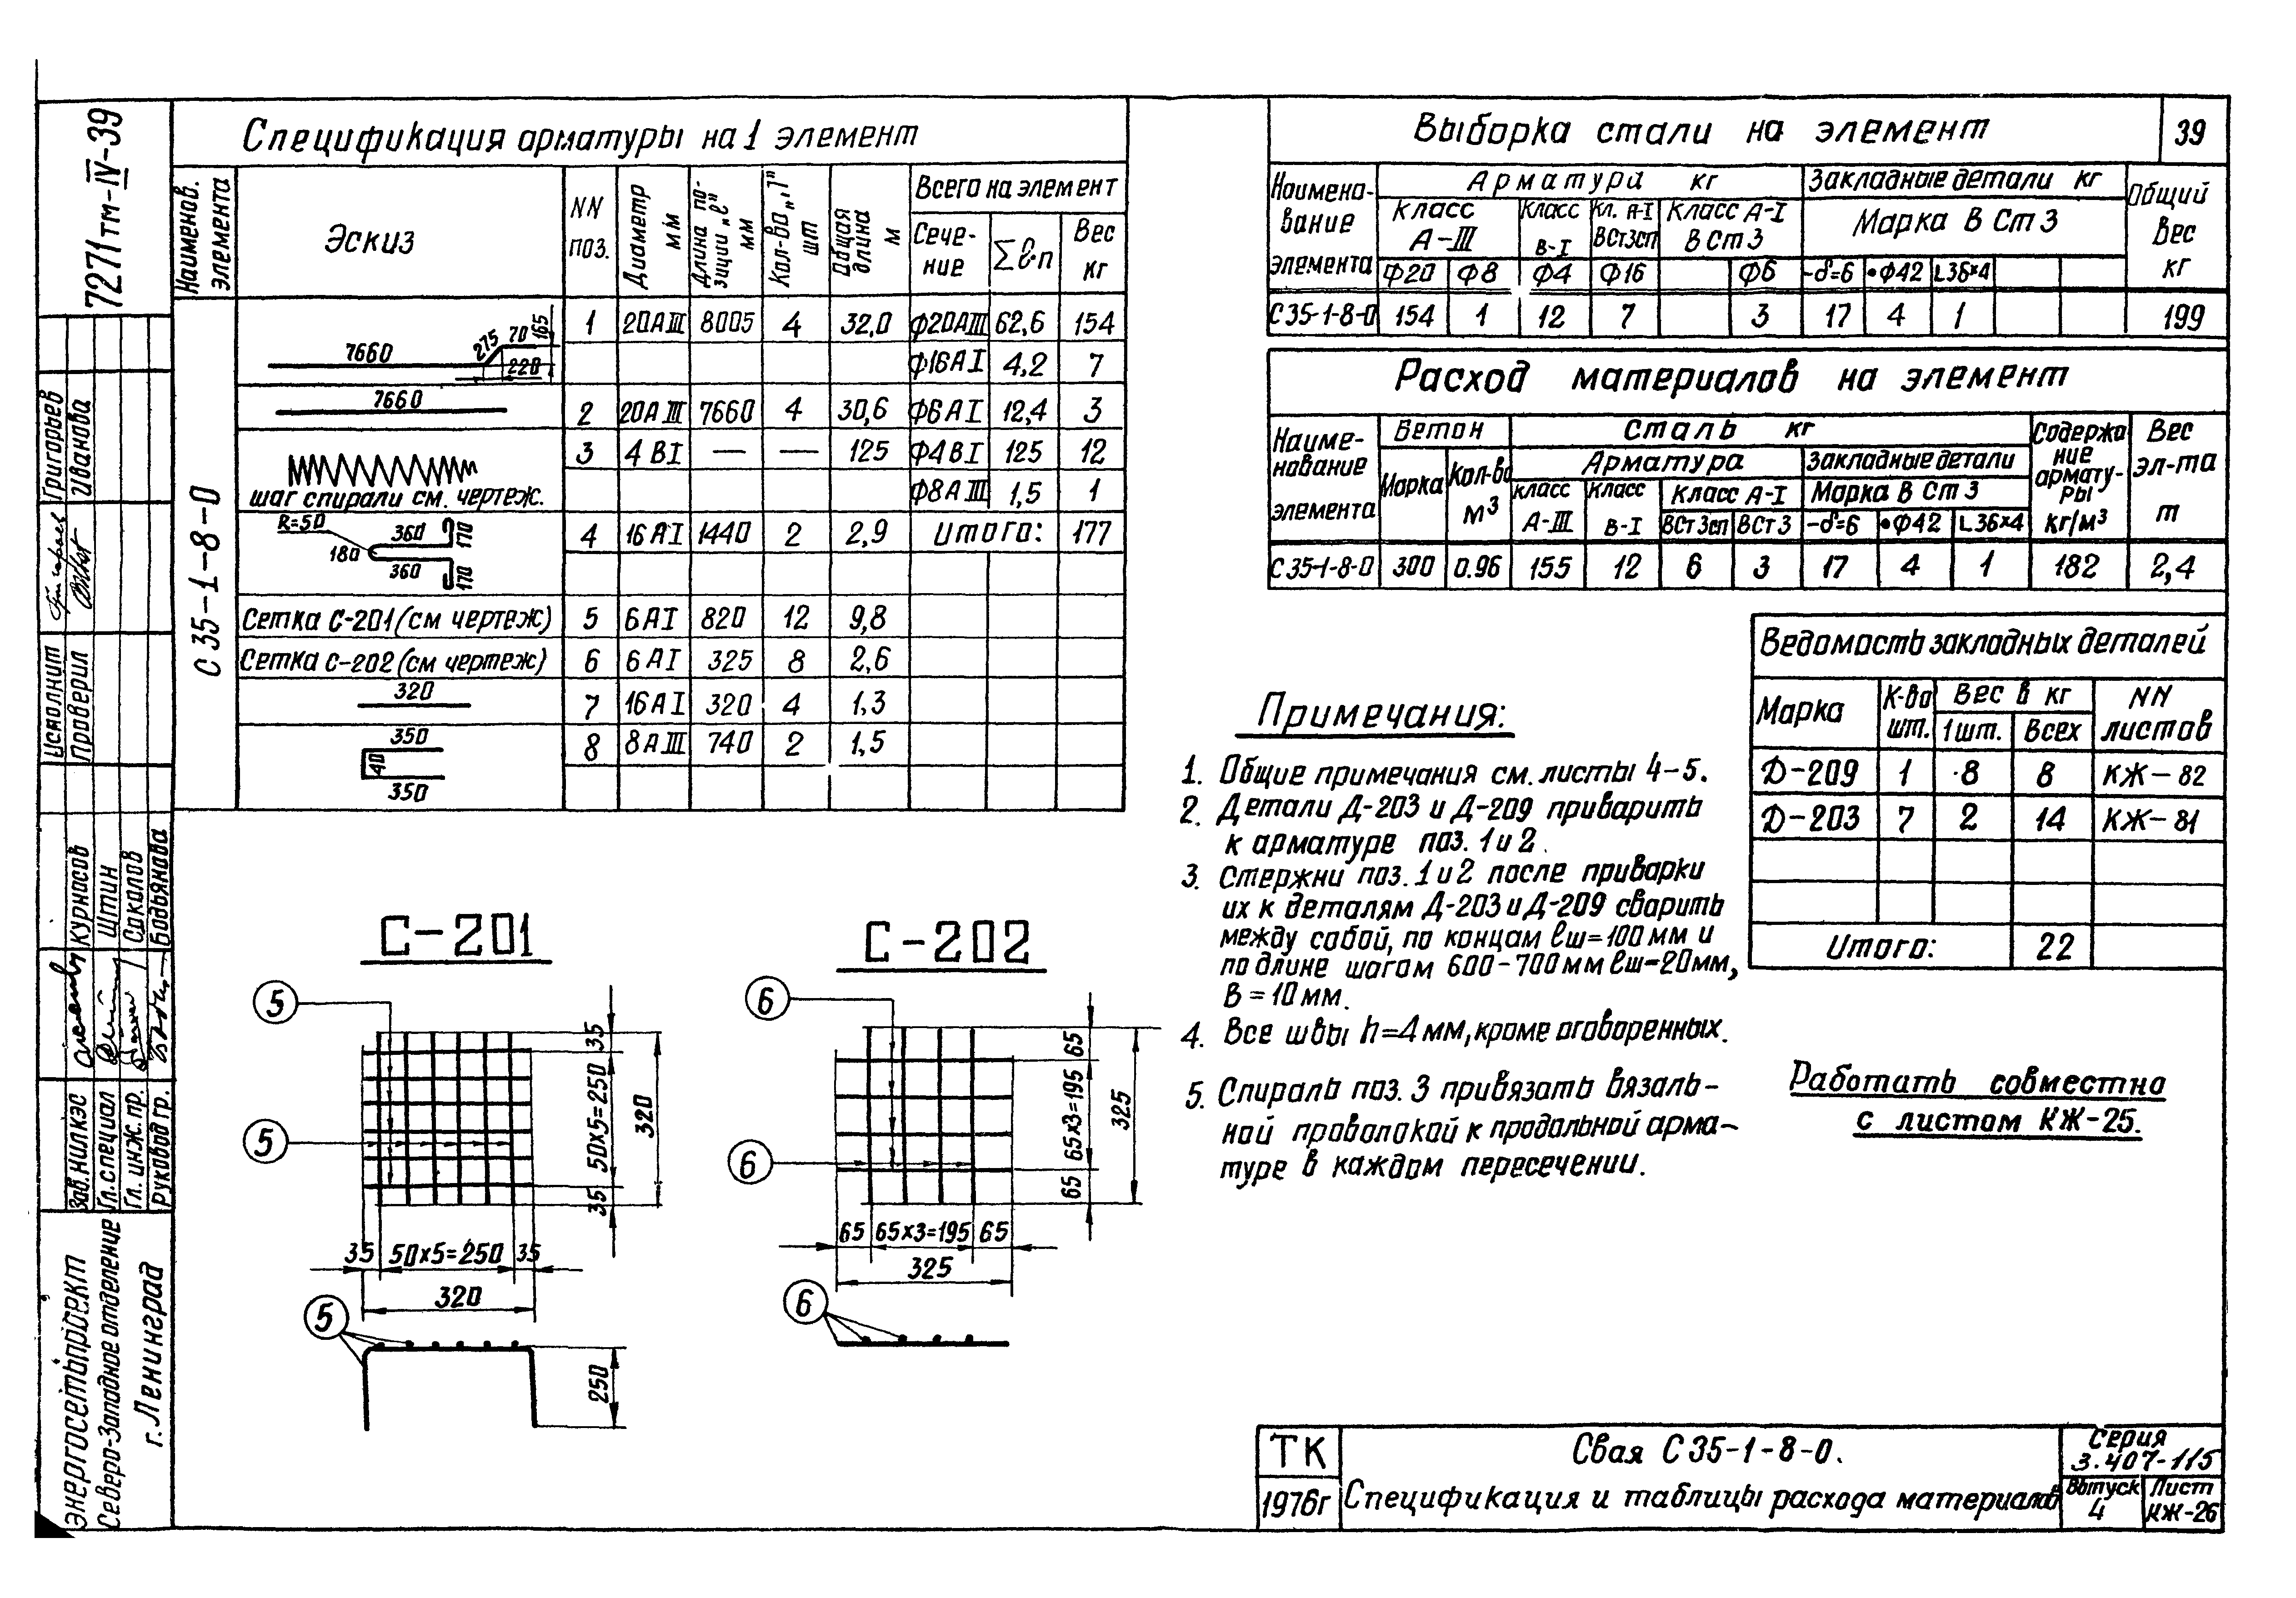 7271тм-IV-39
Спецификация арматуры на 1 элемент
Наименов. элемента
Эскиз
NN поз.
Диаметр мм
Длина позиции „ℓ" мм
Кол-во „n" шт
Общая длина м
Всего на элемент
Сечение
∑ℓ·n
Вес кг
С 35-1-8-0
7660 275 70 165 220
1 20АIII 8005 4 32,0 Ф20АIII 62,6 154
Ф16АI 4,2 7
7660
2 20АIII 7660 4 30,6 Ф6АI 12,4 3
3 4ВI — — 125 Ф4ВI 125 12
шаг спирали см. чертеж.
Ф8АIII 1,5 1
R=50 360 170 180 360 170
4 16АI 1440 2 2,9 Итого: 177
Сетка С-201 (см чертеж) 5 6АI 820 12 9,8
Сетка С-202 (см чертеж) 6 6АI 325 8 2,6
320
7 16АI 320 4 1,3
350 40 350
8 8АIII 740 2 1,5
Выборка стали на элемент
39
Наименование элемента
Арматура кг
Закладные детали кг
Общий вес кг
Класс А-III
Класс В-I
Кл. А-I ВСт3сп
Класс А-I ВСт3
Марка ВСт3
Ф20 Ф8 Ф4 Ф16 Ф6 -δ=6 •Ф42 L36×4
С35-1-8-0 154 1 12 7 3 17 4 1 199
Расход материалов на элемент
Наименование элемента
Бетон
Сталь кг
Содержание арматуры кг/м³
Вес эл-та т
Марка
Кол-во м³
Арматура
Закладные детали
Класс А-III
Класс В-I
Класс А-I
Марка ВСт3
ВСт3сп ВСт3 -δ=6 •Ф42 L36×4
С35-1-8-0 300 0.96 155 12 6 3 17 4 1 182 2,4
Ведомость закладных деталей
Марка
К-во шт.
Вес в кг
1 шт. Всех
NN листов
Д-209 1 8 8 КЖ-82
Д-203 7 2 14 КЖ-81
Итого: 22
Примечания:
1. Общие примечания см. листы 4-5.
2. Детали Д-203 и Д-209 приварить
к арматуре поз. 1 и 2.
3. Стержни поз. 1 и 2 после приварки
их к деталям Д-203 и Д-209 сварить
между собой, по концам ℓш=100мм и
по длине шагом 600-700мм ℓш=20мм,
В=10мм.
4. Все швы h=4мм, кроме оговоренных.
5. Спираль поз. 3 привязать вязаль-
ной проволокой к продольной арма-
туре в каждом пересечении.
Работать совместно
с листом КЖ-25.
С-201
5
5
35
50×5=250
35
320
35 50×5=250 35
320
5
250
С-202
6
6
65
65×3=195
65
325
65 65×3=195 65
325
6
Исполнит Григорьев
Проверил Иванова
Зав. НИЛКЭС Курносов
Гл. специал Штин
Гл. инж. пр. Соколов
Руковод гр. Бодьянова
Энергосетьпроект
Северо-Западное отделение
г. Ленинград
ТК
1976г
Свая С35-1-8-0.
Спецификация и таблицы расхода материалов
Серия
3.407-115
Выпуск
4
Лист
КЖ-26